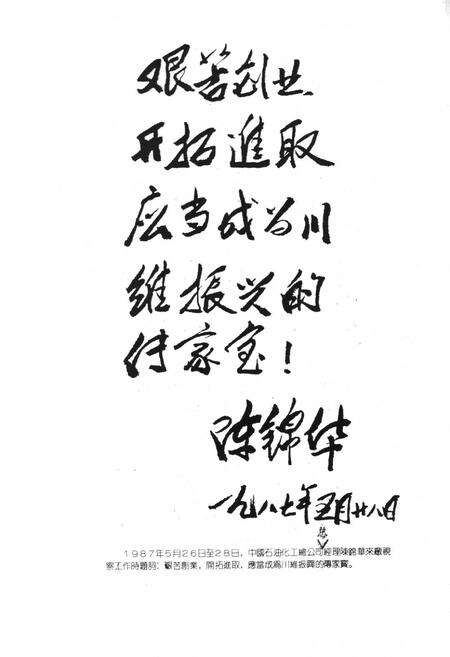 艰苦创业、
开拓進取
应当成为川
维振兴的
传家宝！
陈锦华
一九八七年五月廿八日
总
1987年5月26日至28日，中國石油化工總公司經理陳錦華來廠視
察工作時題詞：艱苦創業，開拓進取，應當成爲川維振興的傳家寶。